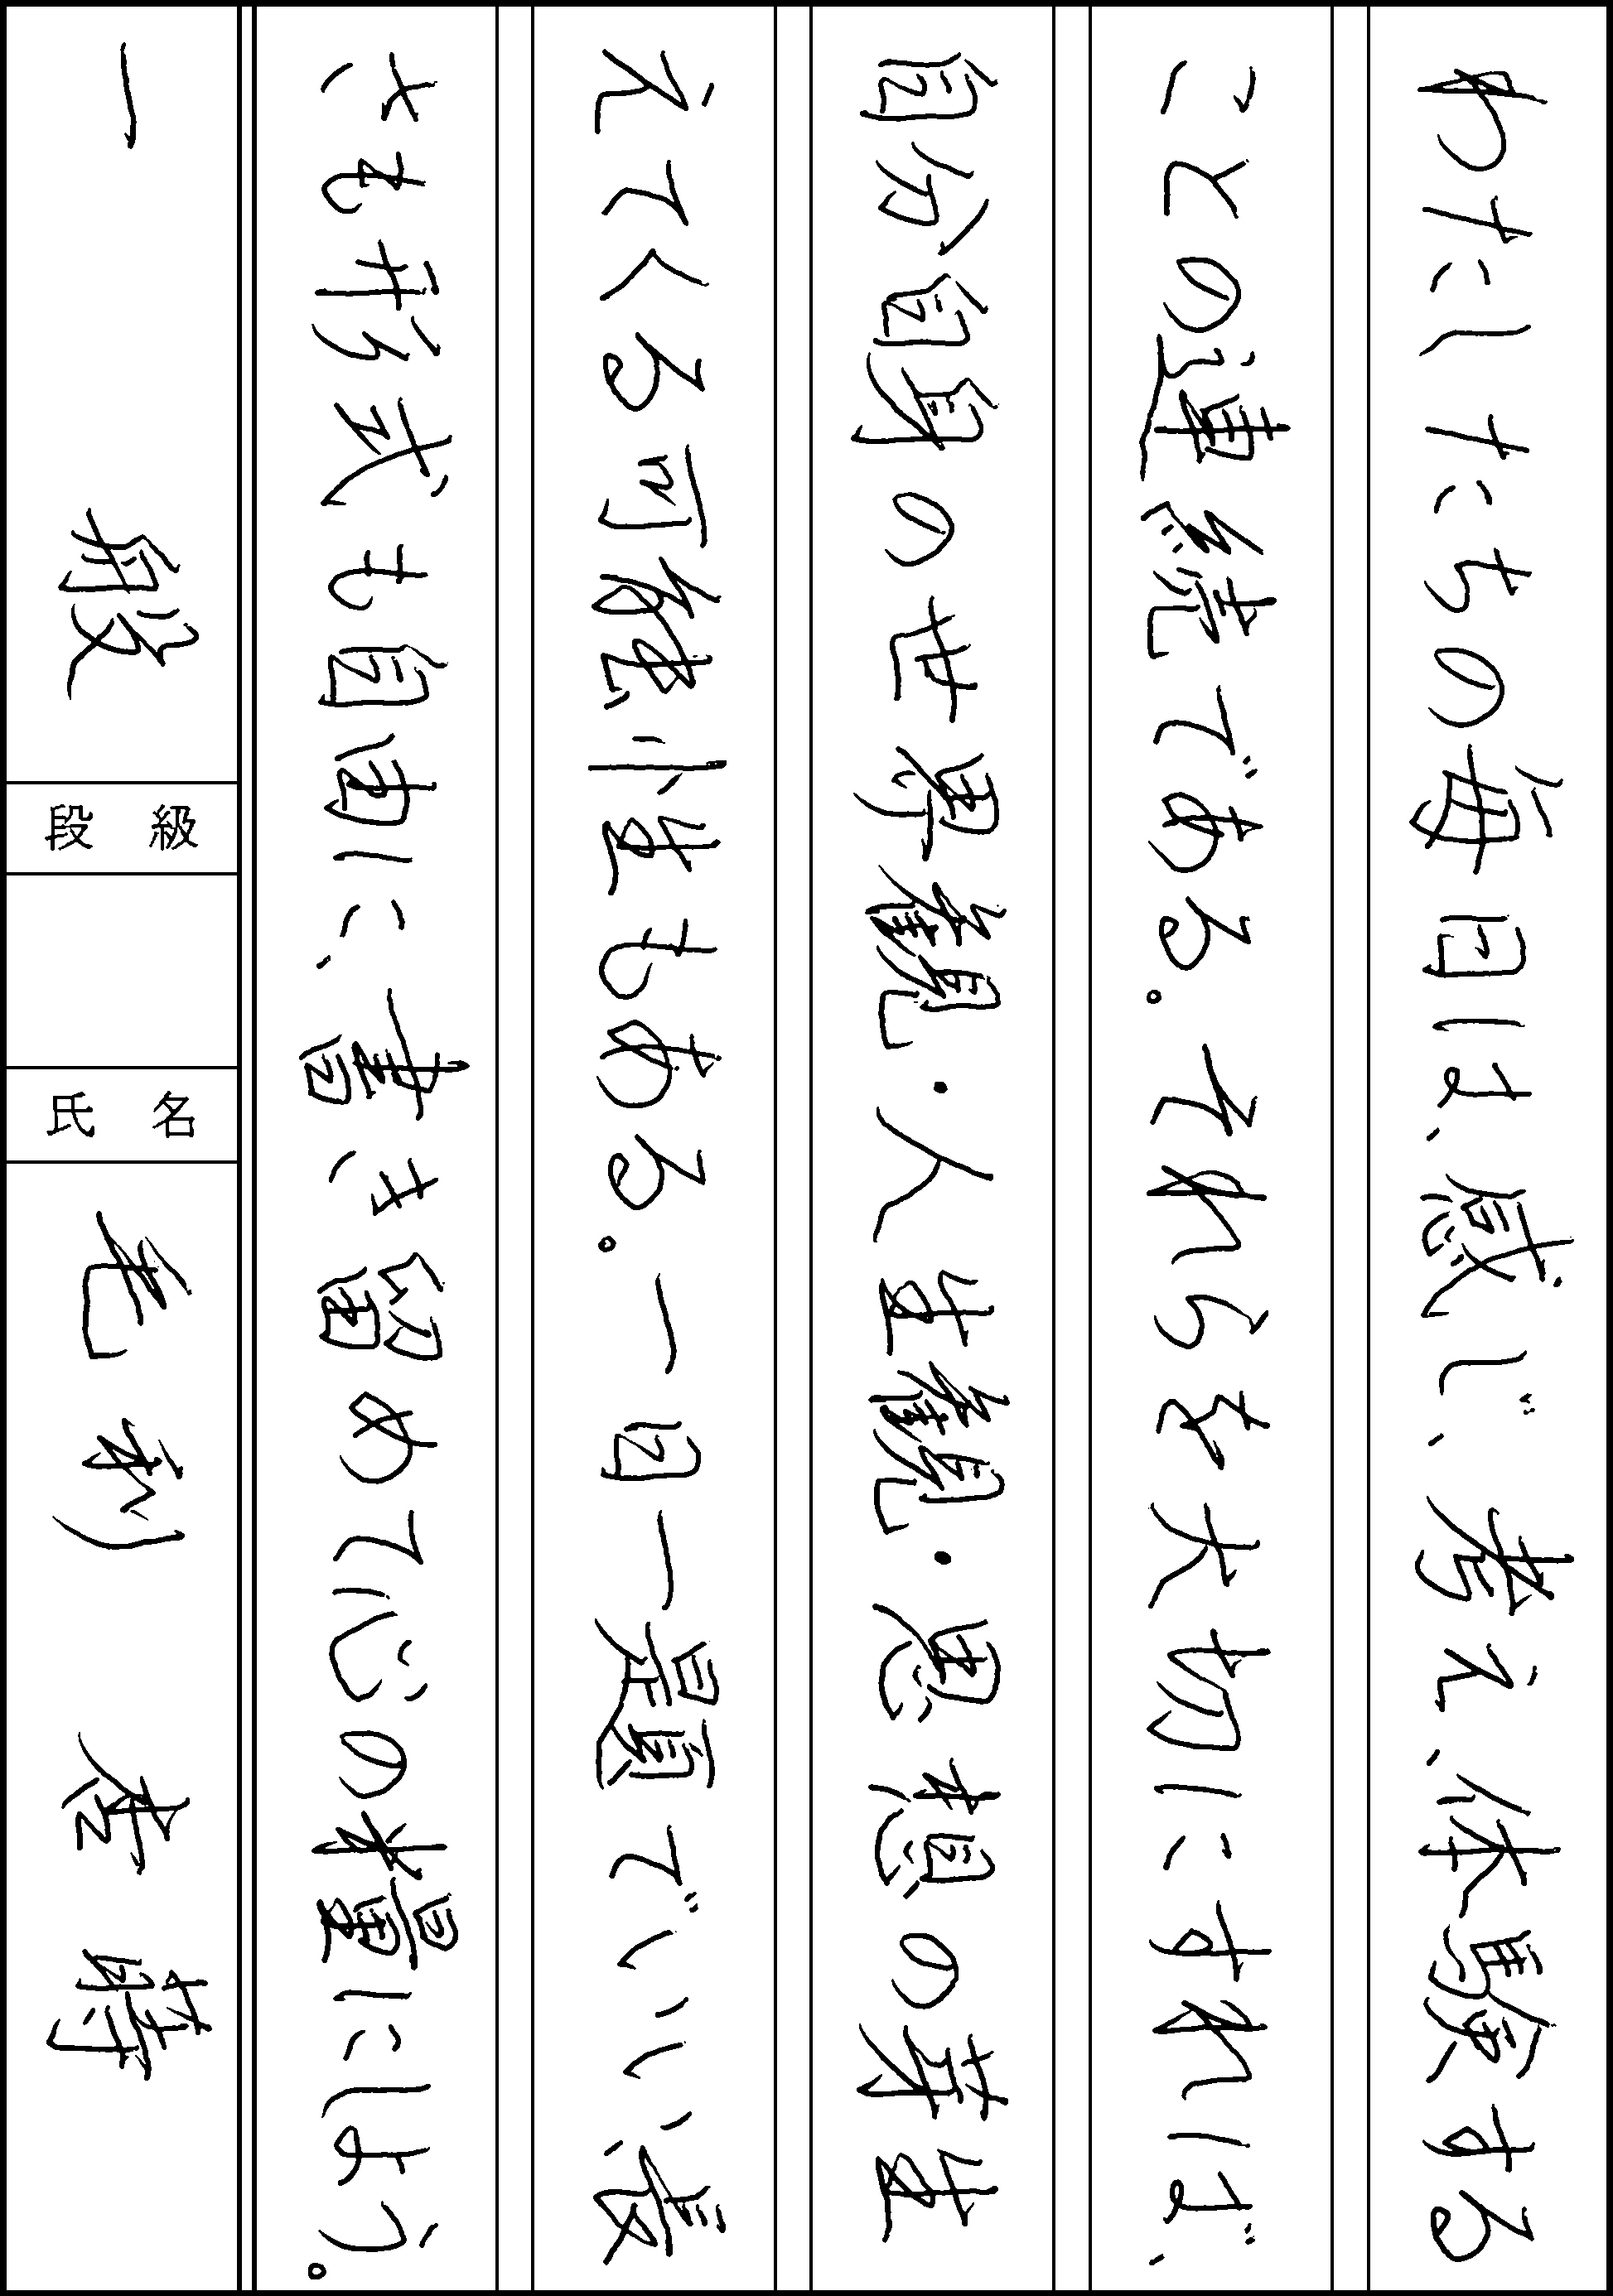 わたしたちの毎日は、感じ、考え、体験する
ことの連続である。それらを大切にすれば、
自分自身の世界観・人生観・思想の芽生
えてくる可能性もある。一日一題でいい、長
さも形式も自由に、書き留めて心の糧にしよう。
一般
段級
氏名
毛利